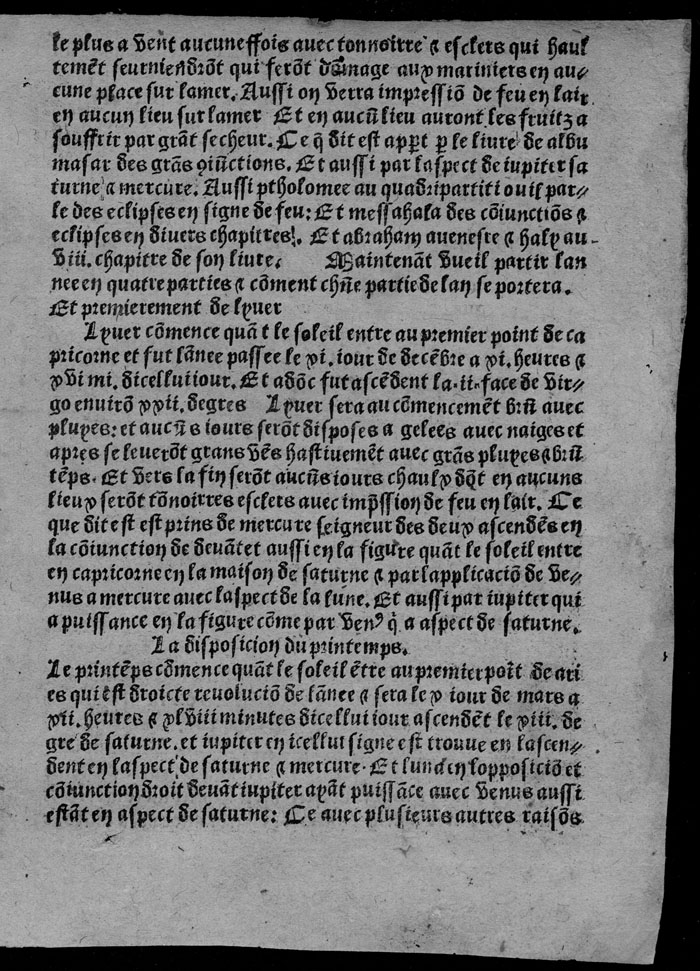 le plus a vent aucuneffois avec tonnoirre ⁊ esclers qui haul
temēt seurniendrōt qui ferōt dōmage aux mariniers en au⸗
cune place sur lamer. Aussi on verra impressiō de feu en lair
en aucun lieu sur lamer Et en aucū lieu auront les fruitz a
souffrir par grāt secheur. Ce q̄ dit est apꝑt ꝑ le liure de albu
masar des grās ꝯiūctions. Et aussi par laspect de iupiter sa
turne ⁊ mercure. Aussi ptholomee au quadripartiti ou il par⸗
le des eclipses en signe de feu: Et messahala des cōiunctiōs ⁊
eclipses en divers chapitres. Et abraham aueneste ⁊ haly au⸗
viii. chapitre de son liure. Maintenāt vueil partir lan
nee en quatre parties ⁊ cōment chūe partie de lan se portera.
Et premierement de lyuer
Lyuer cōmence quāt le soleil entre au premier point de ca
pricorne et fut lānee passee le xi. iour de decēbre a xi. heures ⁊
xvi mi. dicellui iour. Et adōc fut ascēdent la ii face de vir⸗
go enuirō xxii. degres Lyuer sera au cōmencemēt brū avec
pluyes: et aucūs iours serōt disposes a gelees avec naiges et
apres se leuerōt grans vēs hastiuemēt avec grās pluyes ⁊ brū
tēps. Et vers la fin serōt aucūs iours chaulx dōt en aucuns
lieux serōt tōnoirres esclers avec imp̄ssion de feu en lair. Ce
que dit est est prins de mercure seigneur des deux ascendēs en
la cōiunction de deuāt et aussi en la figure quāt le soleil entre
en capricorne en la maison de saturne ⁊ par lapplicaciō de ve⸗
nus a mercure avec laspect de la lune. Et aussi par iupiter qui
a puissance en la figure cōme par venꝰ q̄ a aspect de saturne.
La disposicion du printemps.
Le printēps cōmence quāt le soleil ētre au premier poīt de ari
es qui est droicte reuoluciō de lānee ⁊ sera le x iour de mars a
xii. heures ⁊ xlviii minutes dicellui iour ascendēt le viii. de
gre de saturne. et iupiter en icellui signe est trouue en lascen⸗
dent en laspect de saturne ⁊ mercure. Et luna en lopposiciō et
cōiunction droit deuāt iupiter ayāt puissāce avec venus aussi
estāt en aspect de saturne: Ce avec plusieurs autres raisōs